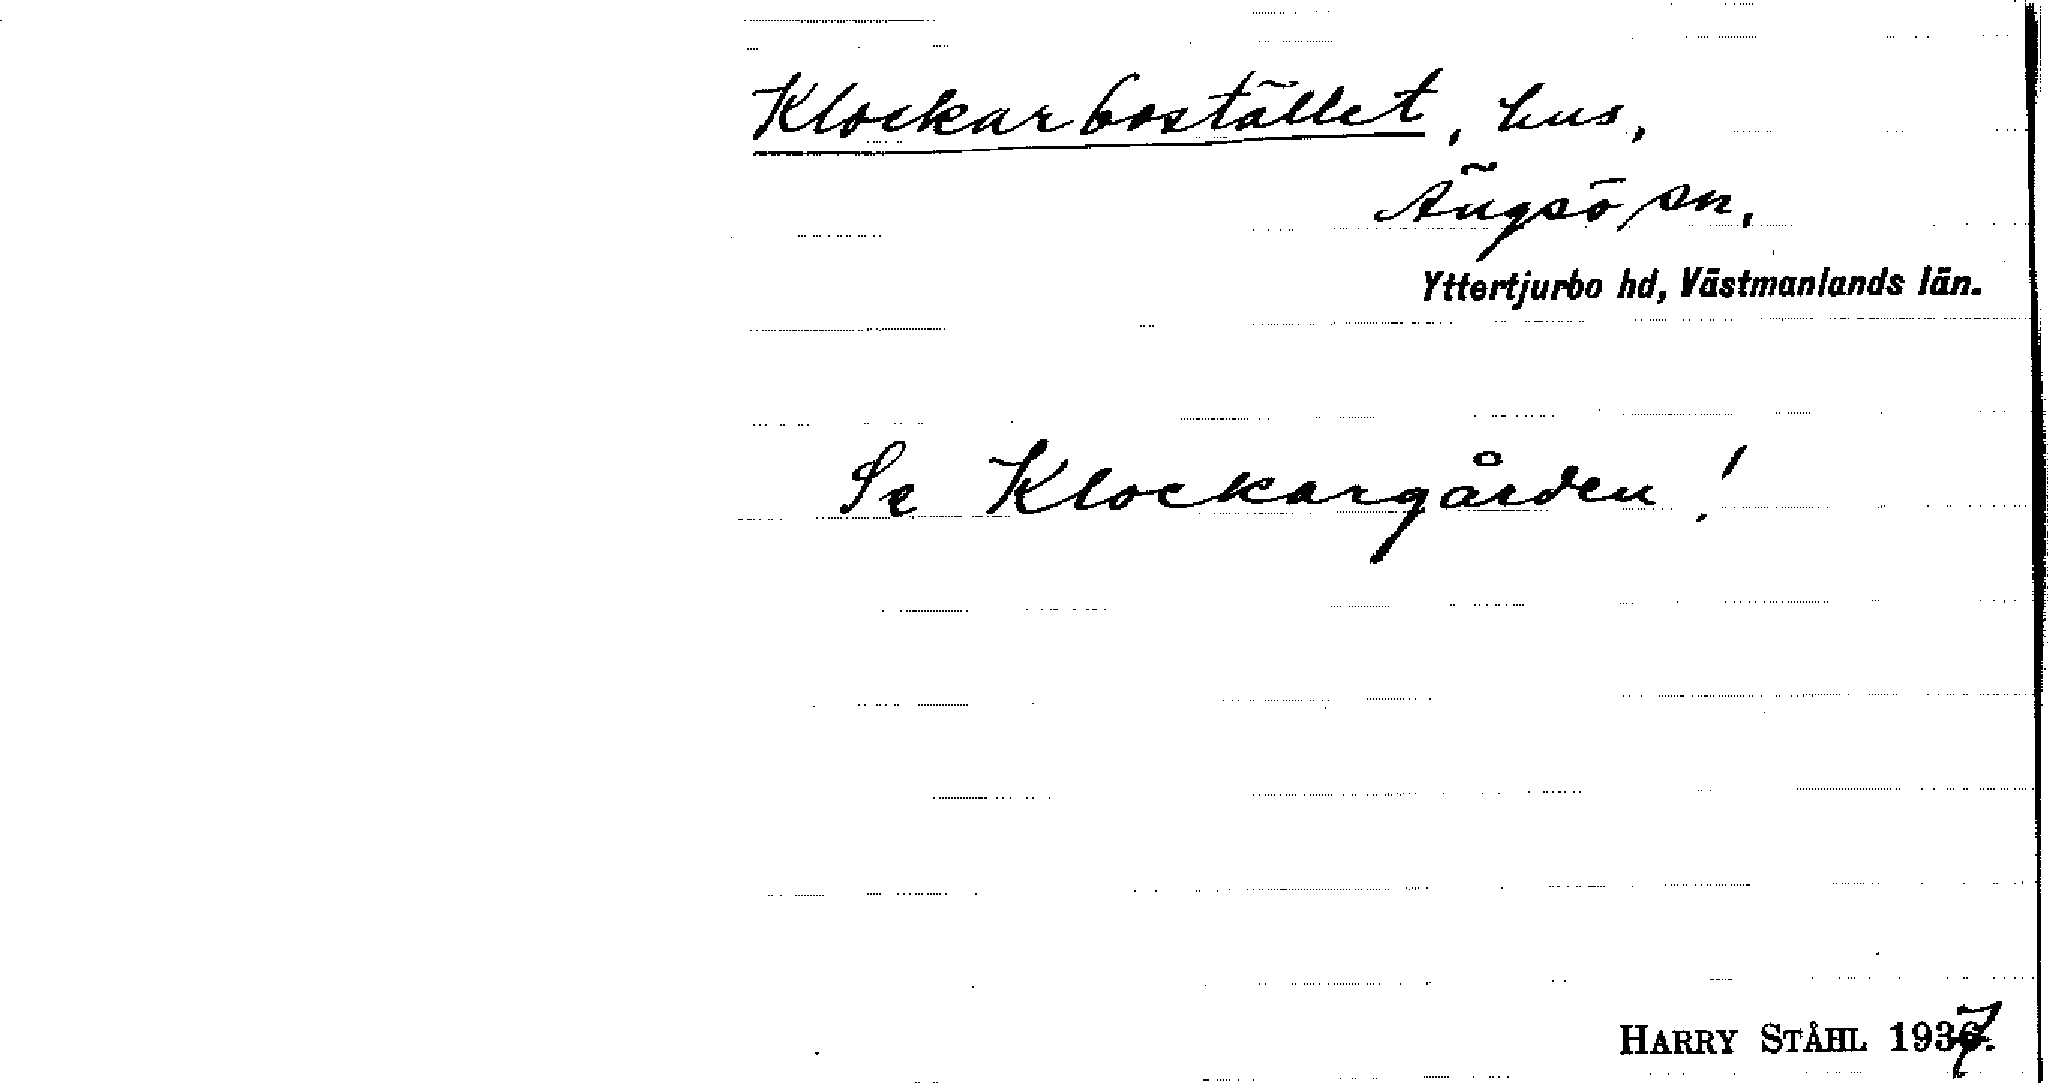 Klockarbostället, hus,
Ängsö sn,
Yttertjurbo hd, Västmanlands län.
Se Klockargården!
HARRY STÅHL 1937.